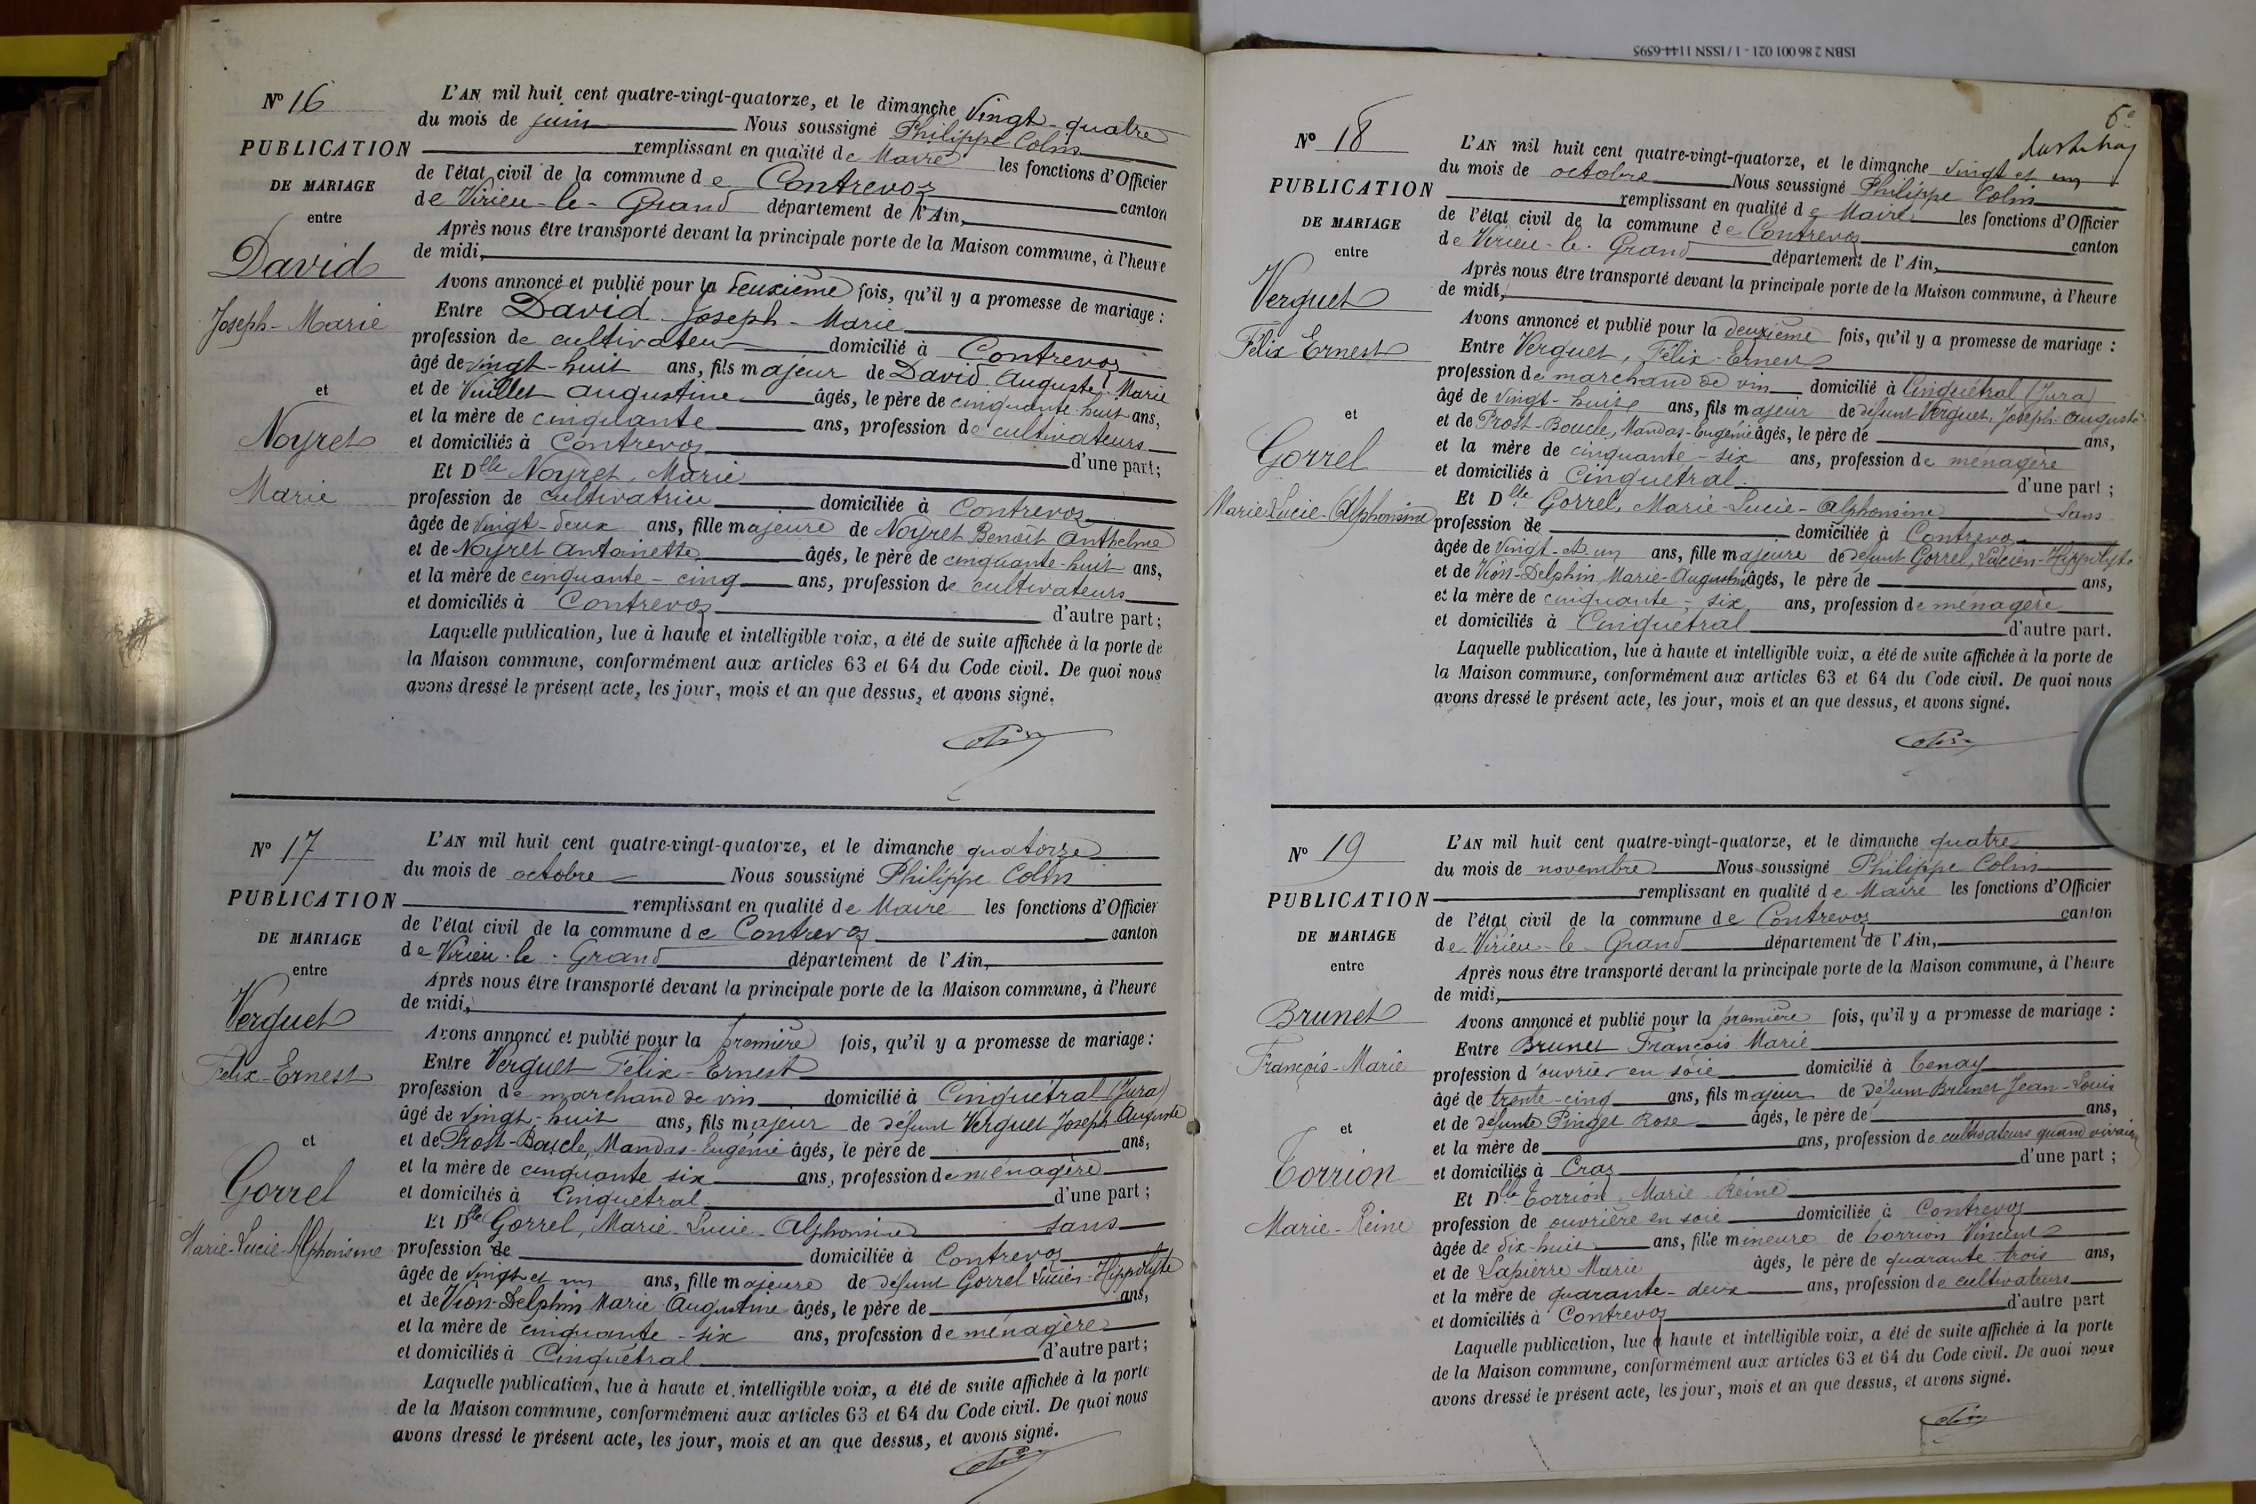 ISBN 2 86 001 021 - 1 / ISSN 1144-6595
N° 16
PUBLICATION
DE MARIAGE
entre
David
Joseph-Marie
et
Noyret
Marie
L'AN mil huit cent quatre-vingt-quatorze, et le dimanche vingt-quatre
du mois de juin Nous soussigné Philippe Colin
remplissant en qualité de Maire les fonctions d'Officier
de l'état civil de la commune de Contrevoz canton
de Virieu-le-Grand département de l'Ain,
Après nous être transporté devant la principale porte de la Maison commune, à l'heure
de midi,
Avons annoncé et publié pour la deuxième fois, qu'il y a promesse de mariage :
Entre David Joseph-Marie
profession de cultivateur domicilié à Contrevoz
âgé de vingt-huit ans, fils majeur de David Auguste Marie
et de Vuillet Augustine âgés, le père de cinquante-huit ans,
et la mère de cinquante ans, profession de cultivateurs
et domiciliés à Contrevoz d'une part;
Et Dlle Noyret, Marie
profession de cultivatrice domiciliée à Contrevoz
âgée de vingt-deux ans, fille majeure de Noyret Benoit Anthelme
et de Noyret Antoinette âgés, le père de cinquante-huit ans,
et la mère de cinquante-cinq ans, profession de cultivateurs
et domiciliés à Contrevoz d'autre part;
Laquelle publication, lue à haute et intelligible voix, a été de suite affichée à la porte de
la Maison commune, conformément aux articles 63 et 64 du Code civil. De quoi nous
avons dressé le présent acte, les jour, mois et an que dessus, et avons signé.
Colin
N° 17
PUBLICATION
DE MARIAGE
entre
Verguet
Félix-Ernest
et
Gorrel
Marie-Lucie-Alphonsine
L'AN mil huit cent quatre-vingt-quatorze, et le dimanche quatorze
du mois de octobre Nous soussigné Philippe Colin
remplissant en qualité de Maire les fonctions d'Officier
de l'état civil de la commune de Contrevoz canton
de Virieu-le-Grand département de l'Ain,
Après nous être transporté devant la principale porte de la Maison commune, à l'heure
de midi,
Avons annoncé et publié pour la première fois, qu'il y a promesse de mariage :
Entre Verguet Félix-Ernest
profession de marchand de vin domicilié à Cinquétral (Jura)
âgé de vingt-huit ans, fils majeur de défunt Verguet Joseph Auguste
et de Prost-Boucle, Mandas-Eugénie âgés, le père de ans,
et la mère de cinquante six ans, profession de ménagère
et domiciliés à Cinquétral d'une part;
Et Dlle Gorrel, Marie-Lucie-Alphonsine sans
profession de domiciliée à Contrevoz
âgée de vingt et un ans, fille majeure de défunt Gorrel Lucien-Hippolyte
et de Vion-Delphin Marie Augustine âgés, le père de ans,
et la mère de cinquante-six ans, profession de ménagère
et domiciliés à Cinquétral d'autre part;
Laquelle publication, lue à haute et intelligible voix, a été de suite affichée à la porte
de la Maison commune, conformément aux articles 63 et 64 du Code civil. De quoi nous
avons dressé le présent acte, les jour, mois et an que dessus, et avons signé.
Colin
N° 18
PUBLICATION
DE MARIAGE
entre
Verguet
Félix Ernest
et
Gorrel
Marie Lucie-Alphonsine
L'AN mil huit cent quatre-vingt-quatorze, et le dimanche vingt et un
du mois de octobre Nous soussigné Philippe Colin
remplissant en qualité de Maire les fonctions d'Officier
de l'état civil de la commune de Contrevoz canton
de Virieu-le-Grand département de l'Ain,
Après nous être transporté devant la principale porte de la Maison commune, à l'heure
de midi,
Avons annoncé et publié pour la deuxième fois, qu'il y a promesse de mariage :
Entre Verguet, Félix-Ernest
profession de marchand de vin domicilié à Cinquétral (Jura)
âgé de vingt-huit ans, fils majeur de défunt Verguet, Joseph-Auguste
et de Prost-Boucle, Mandas-Eugénie âgés, le père de ans,
et la mère de cinquante-six ans, profession de ménagère
et domiciliés à Cinquétral d'une part;
Et Dlle Gorrel, Marie-Lucie-Alphonsine sans
profession de domiciliée à Contrevoz
âgée de vingt-et-un ans, fille majeure de défunt Gorrel, Lucien-Hippolyte
et de Vion-Delphin, Marie-Augustine âgés, le père de ans,
et la mère de cinquante-six ans, profession de ménagère
et domiciliés à Cinquétral d'autre part.
Laquelle publication, lue à haute et intelligible voix, a été de suite affichée à la porte de
la Maison commune, conformément aux articles 63 et 64 du Code civil. De quoi nous
avons dressé le présent acte, les jour, mois et an que dessus, et avons signé.
Colin
N° 19
PUBLICATION
DE MARIAGE
entre
Brunet
François-Marie
et
Torrion
Marie-Reine
L'AN mil huit cent quatre-vingt-quatorze, et le dimanche quatre
du mois de novembre Nous soussigné Philippe Colin
remplissant en qualité de Maire les fonctions d'Officier
de l'état civil de la commune de Contrevoz canton
de Virieu-le-Grand département de l'Ain,
Après nous être transporté devant la principale porte de la Maison commune, à l'heure
de midi,
Avons annoncé et publié pour la première fois, qu'il y a promesse de mariage :
Entre Brunet François Marie
profession d'ouvrier en soie domicilié à Tenay
âgé de trente-cinq ans, fils majeur de défunt Brunet Jean-Louis
et de défunte Pinget Rose âgés, le père de ans,
et la mère de ans, profession de cultivateurs quand vivaient
et domiciliés à Craz d'une part;
Et Dlle Torrion, Marie Reine
profession de ouvrière en soie domiciliée à Contrevoz
âgée de dix-huit ans, fille mineure de Torrion Vincent
et de Lapierre Marie âgés, le père de quarante-trois ans,
et la mère de quarante-deux ans, profession de cultivateurs
et domiciliés à Contrevoz d'autre part
Laquelle publication, lue à haute et intelligible voix, a été de suite affichée à la porte
de la Maison commune, conformément aux articles 63 et 64 du Code civil. De quoi nous
avons dressé le présent acte, les jour, mois et an que dessus, et avons signé.
Colin